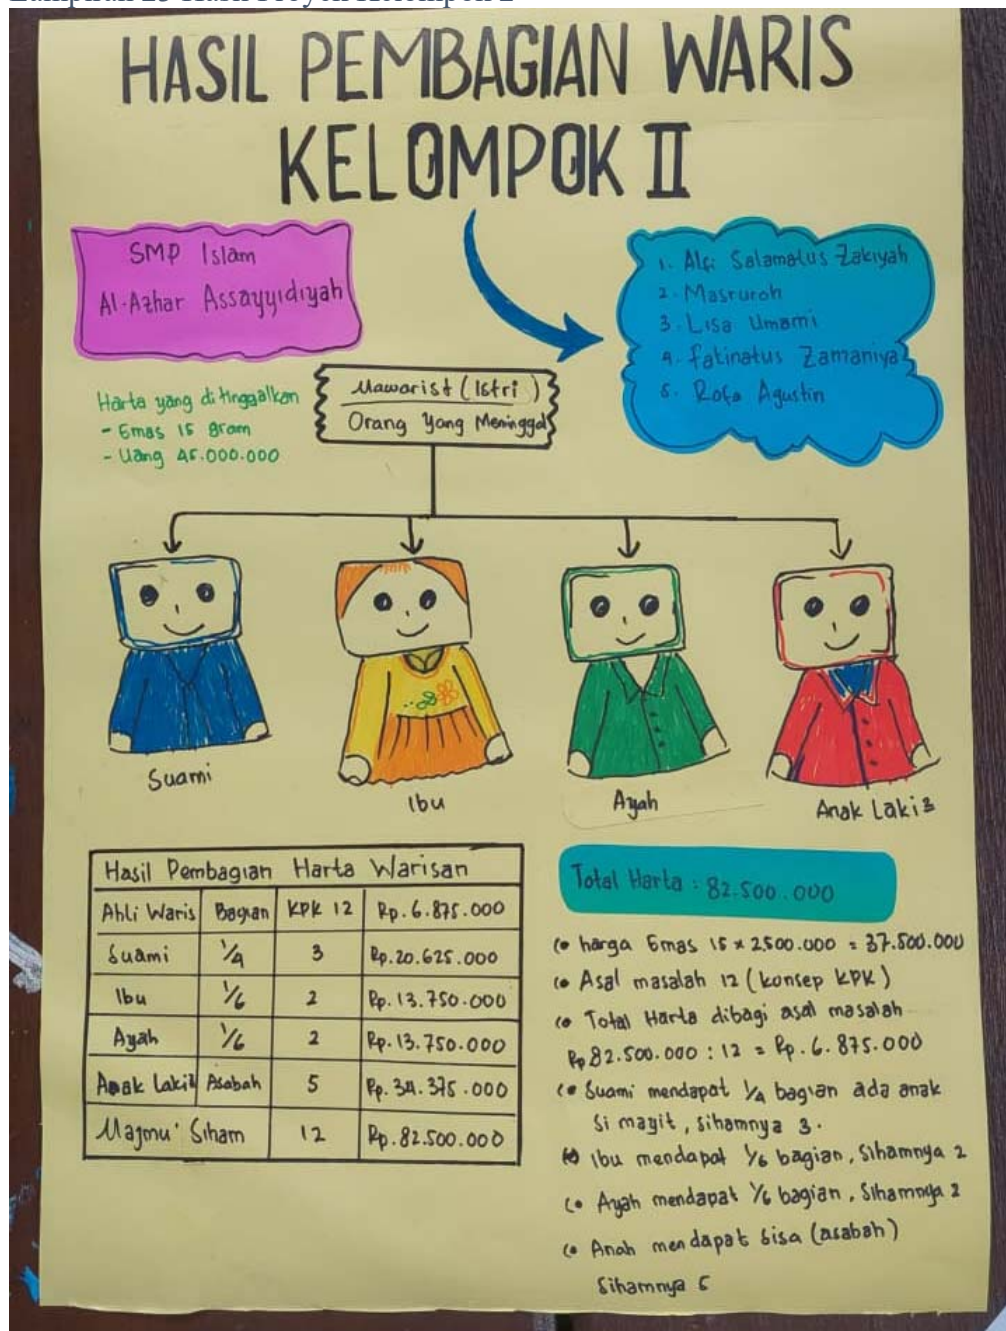 HASIL PEMBAGIAN WARIS
KELOMPOK II
SMP Islam
Al-Azhar Assayyidiyah
1. Alfi Salamatus Zakiyah
2. Masruroh
3. Lisa Umami
4. fatinatus Zamaniya
5. Rofa Agustin
Harta yang ditinggalkan
- Emas 15 gram
- Uang 45.000.000
Mawarist (Istri)
Orang Yang Meninggal
Suami
Ibu
Ayah
Anak Laki2
Hasil Pembagian Harta Warisan
Ahli Waris Bagian KPK 12 Rp. 6.875.000
Suami 1/4 3 Rp. 20.625.000
Ibu 1/6 2 Rp. 13.750.000
Ayah 1/6 2 Rp. 13.750.000
Anak Laki2 Asabah 5 Rp. 34.375.000
Majmu' Siham 12 Rp. 82.500.000
Total Harta : 82.500.000
harga Emas 15 x 2.500.000 = 37.500.000
Asal masalah 12 (konsep KPK)
Total Harta dibagi asal masalah
Rp 82.500.000 : 12 = Rp. 6.875.000
Suami mendapat 1/4 bagian ada anak
si mayit, sihamnya 3.
Ibu mendapat 1/6 bagian, Sihamnya 2
Ayah mendapat 1/6 bagian, Sihamnya 2
Anah mendapat sisa (asabah)
Sihamnya 5